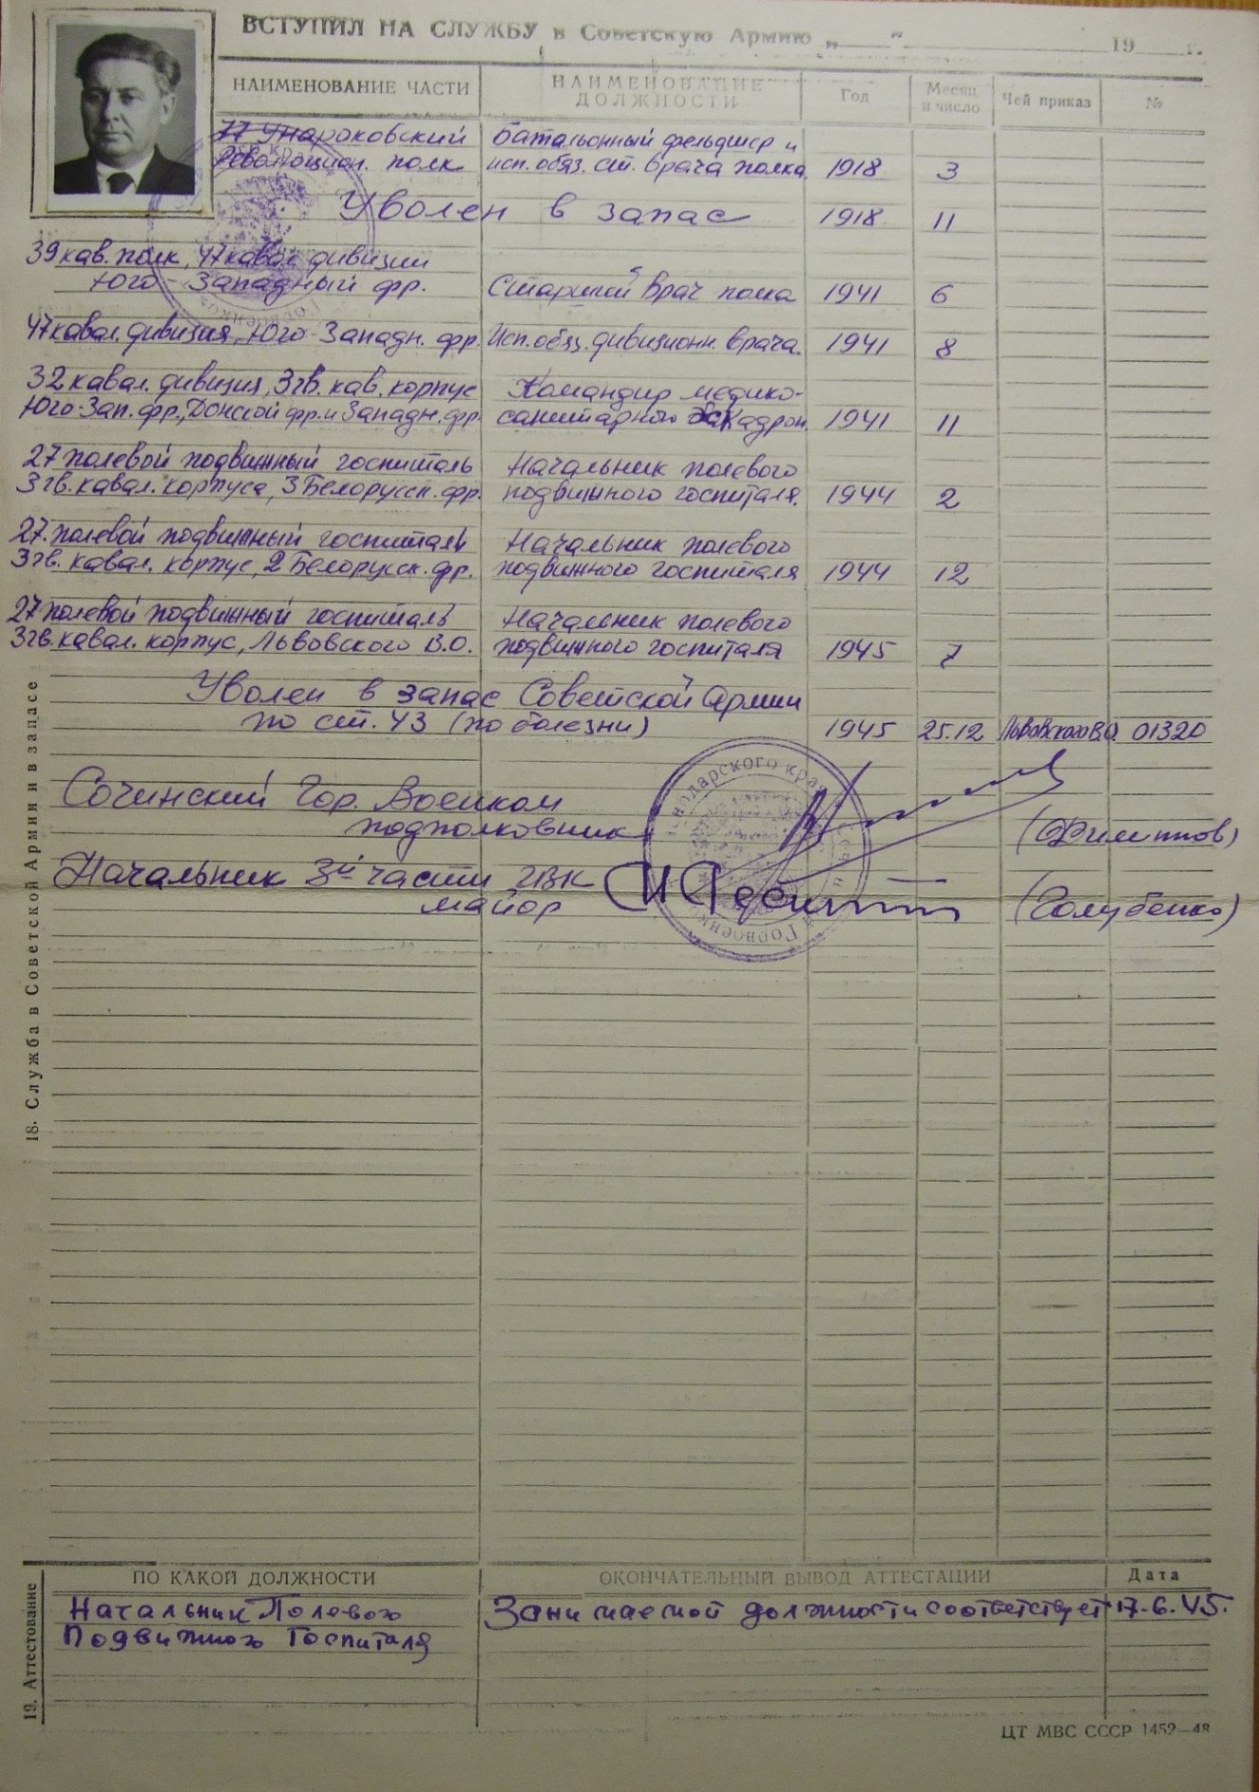 ВСТУПИЛ НА СЛУЖБУ в Советскую Армию „ “ 19 г.
НАИМЕНОВАНИЕ ЧАСТИ НАИМЕНОВАНИЕ ДОЛЖНОСТИ Год Месяц и число Чей приказ №
77 Унароковский батальонный фельдшер и
Революцион. полк исп. обяз. ст. врача полка 1918 3
Уволен в запас 1918 11
39 кав. полк, 47 кавал. дивизии
Юго-Западный фр. Старший врач полка 1941 6
47 кавал. дивизия, Юго-Западн. фр. Исп. обяз. дивизионн. врача. 1941 8
32 кавал. дивизия, 3 гв. кав. корпус Командир медико-
Юго-Зап. фр., Донской фр. и Западн. фр. санитарного эскадрон. 1941 11
27 полевой подвижный госпиталь Начальник полевого
3 гв. кавал. корпуса, 3 Белорусск. фр. подвижного госпиталя. 1944 2
27. полевой подвижный госпиталь Начальник полевого
3 гв. кавал. корпус, 2 Белорусск. фр. подвижного госпиталя 1944 12
27 полевой подвижный госпиталь Начальник полевого
3 гв. кавал. корпус, Львовского В.О. подвижного госпиталя 1945 7
Уволен в запас Советской Армии
по ст. 43 (по болезни) 1945 25.12 Львовского В.О. 01320
Сочинский Гор. Военком
подполковник (Филиппов)
Начальник 3й части ГВК
майор (Голубенко)
18. Служба в Советской Армии и в запасе
ПО КАКОЙ ДОЛЖНОСТИ ОКОНЧАТЕЛЬНЫЙ ВЫВОД АТТЕСТАЦИИ Дата
Начальник Полевого Занимаемой должности соответствует 17.6.45.
Подвижного Госпиталя
19. Аттестование
ЦТ МВС СССР 1452—48